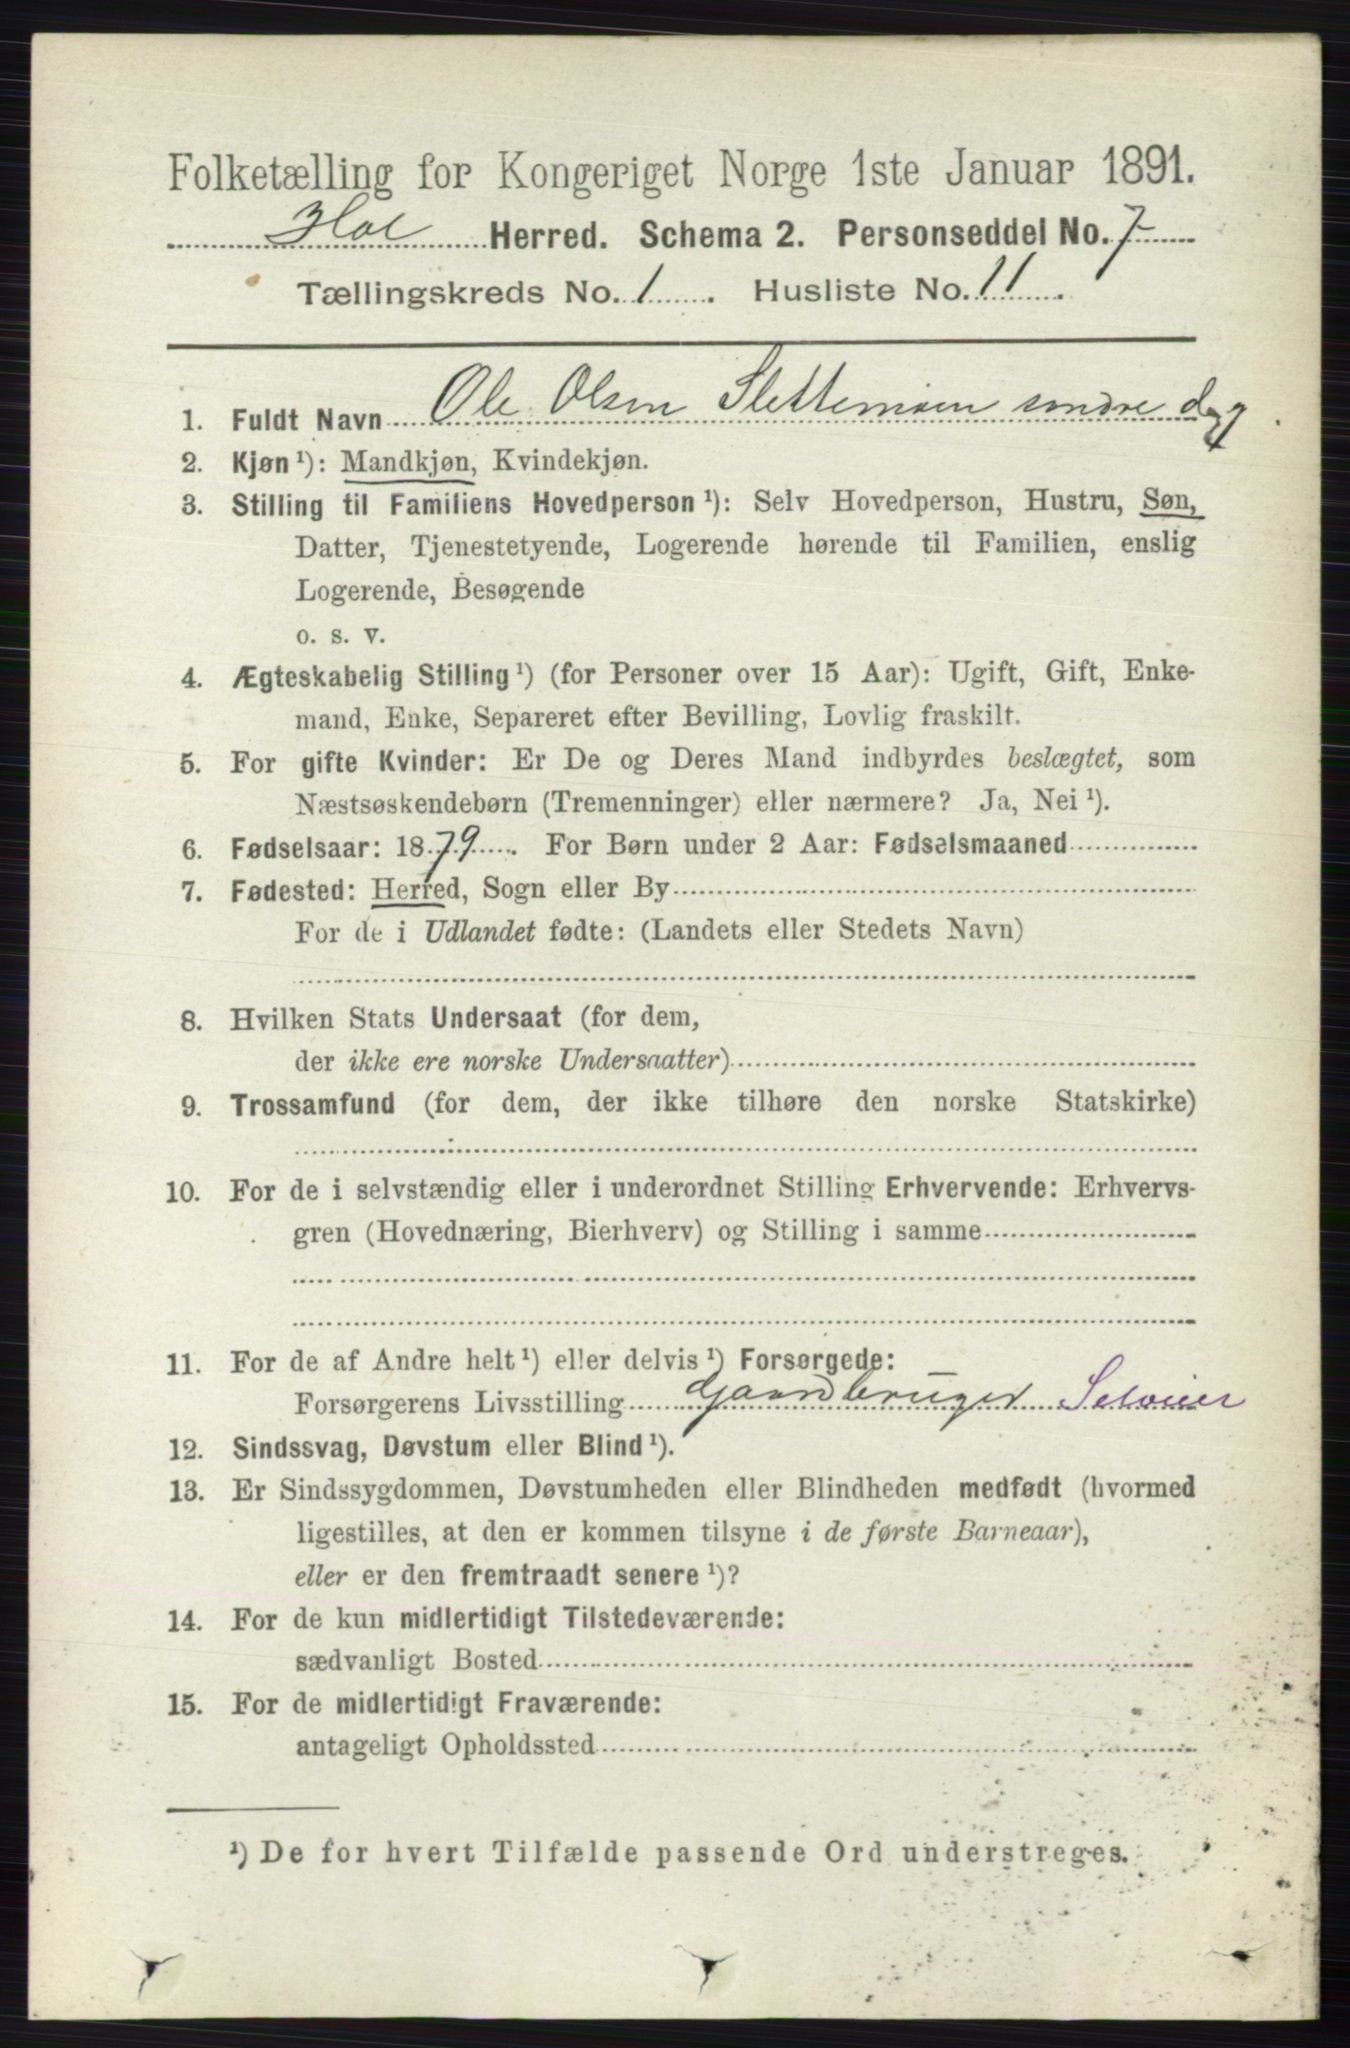 Folketælling for Kongeriget Norge 1ste Januar 1891.
Hol Herred. Schema 2. Personseddel No. 7
Tællingskreds No. 1. Husliste No. 11.
1. Fuldt Navn Ole Olsen Slettemoen søndre
2. Kjøn ¹): Mandkjøn, Kvindekjøn.
3. Stilling til Familiens Hovedperson ¹): Selv Hovedperson, Hustru, Søn,
Datter, Tjenestetyende, Logerende hørende til Familien, enslig
Logerende, Besøgende
o. s. v.
4. Ægteskabelig Stilling ¹) (for Personer over 15 Aar): Ugift, Gift, Enke-
mand, Enke, Separeret efter Bevilling, Lovlig fraskilt.
5. For gifte Kvinder: Er De og Deres Mand indbyrdes beslægtet, som
Næstsøskendebørn (Tremenninger) eller nærmere? Ja, Nei ¹).
6. Fødselsaar: 1879. For Børn under 2 Aar: Fødselsmaaned
7. Fødested: Herred, Sogn eller By
For de i Udlandet fødte: (Landets eller Stedets Navn)
8. Hvilken Stats Undersaat (for dem,
der ikke ere norske Undersaatter)
9. Trossamfund (for dem, der ikke tilhøre den norske Statskirke)
10. For de i selvstændig eller i underordnet Stilling Erhvervende: Erhvervs-
gren (Hovednæring, Bierhverv) og Stilling i samme
11. For de af Andre helt ¹) eller delvis ¹) Forsørgede:
Forsørgerens Livsstilling Gaardbruger Selveier
12. Sindssvag, Døvstum eller Blind ¹).
13. Er Sindssygdommen, Døvstumheden eller Blindheden medfødt (hvormed
ligestilles, at den er kommen tilsyne i de første Barneaar),
eller er den fremtraadt senere ¹)?
14. For de kun midlertidigt Tilstedeværende:
sædvanligt Bosted
15. For de midlertidigt Fraværende:
antageligt Opholdssted
¹) De for hvert Tilfælde passende Ord understreges.